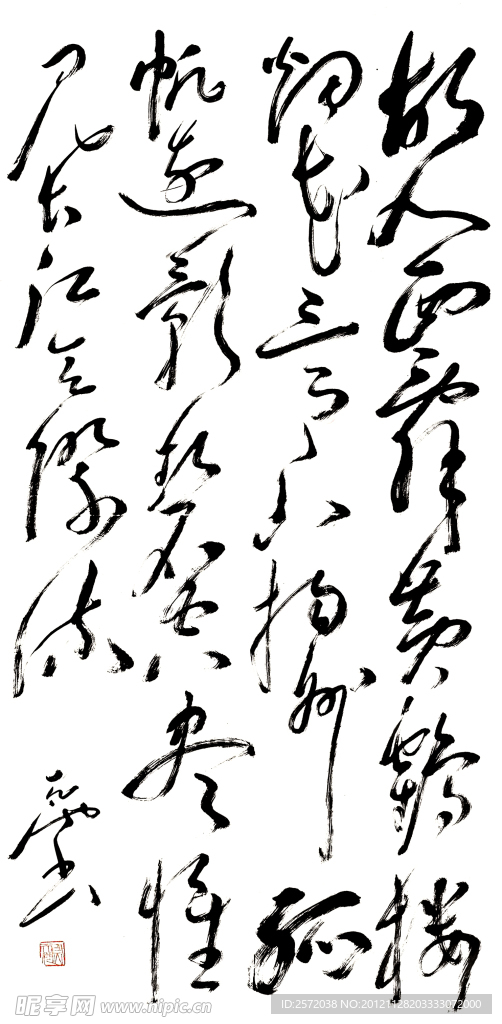 故人西辭黄鶴楼
烟花三月下揚州孤
帆遠影碧空尽惟
見長江天際流
昵享网 www.nipic.cn
ID:2572038 NO:20121128203333072000